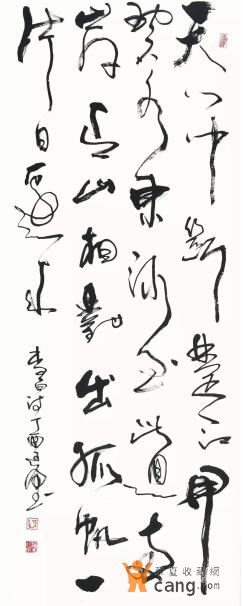 天门中断楚江开
碧水東流至此回两
岸青山相對出孤帆一
片日边来
李白诗丁酉书
华夏收藏网
cang.com